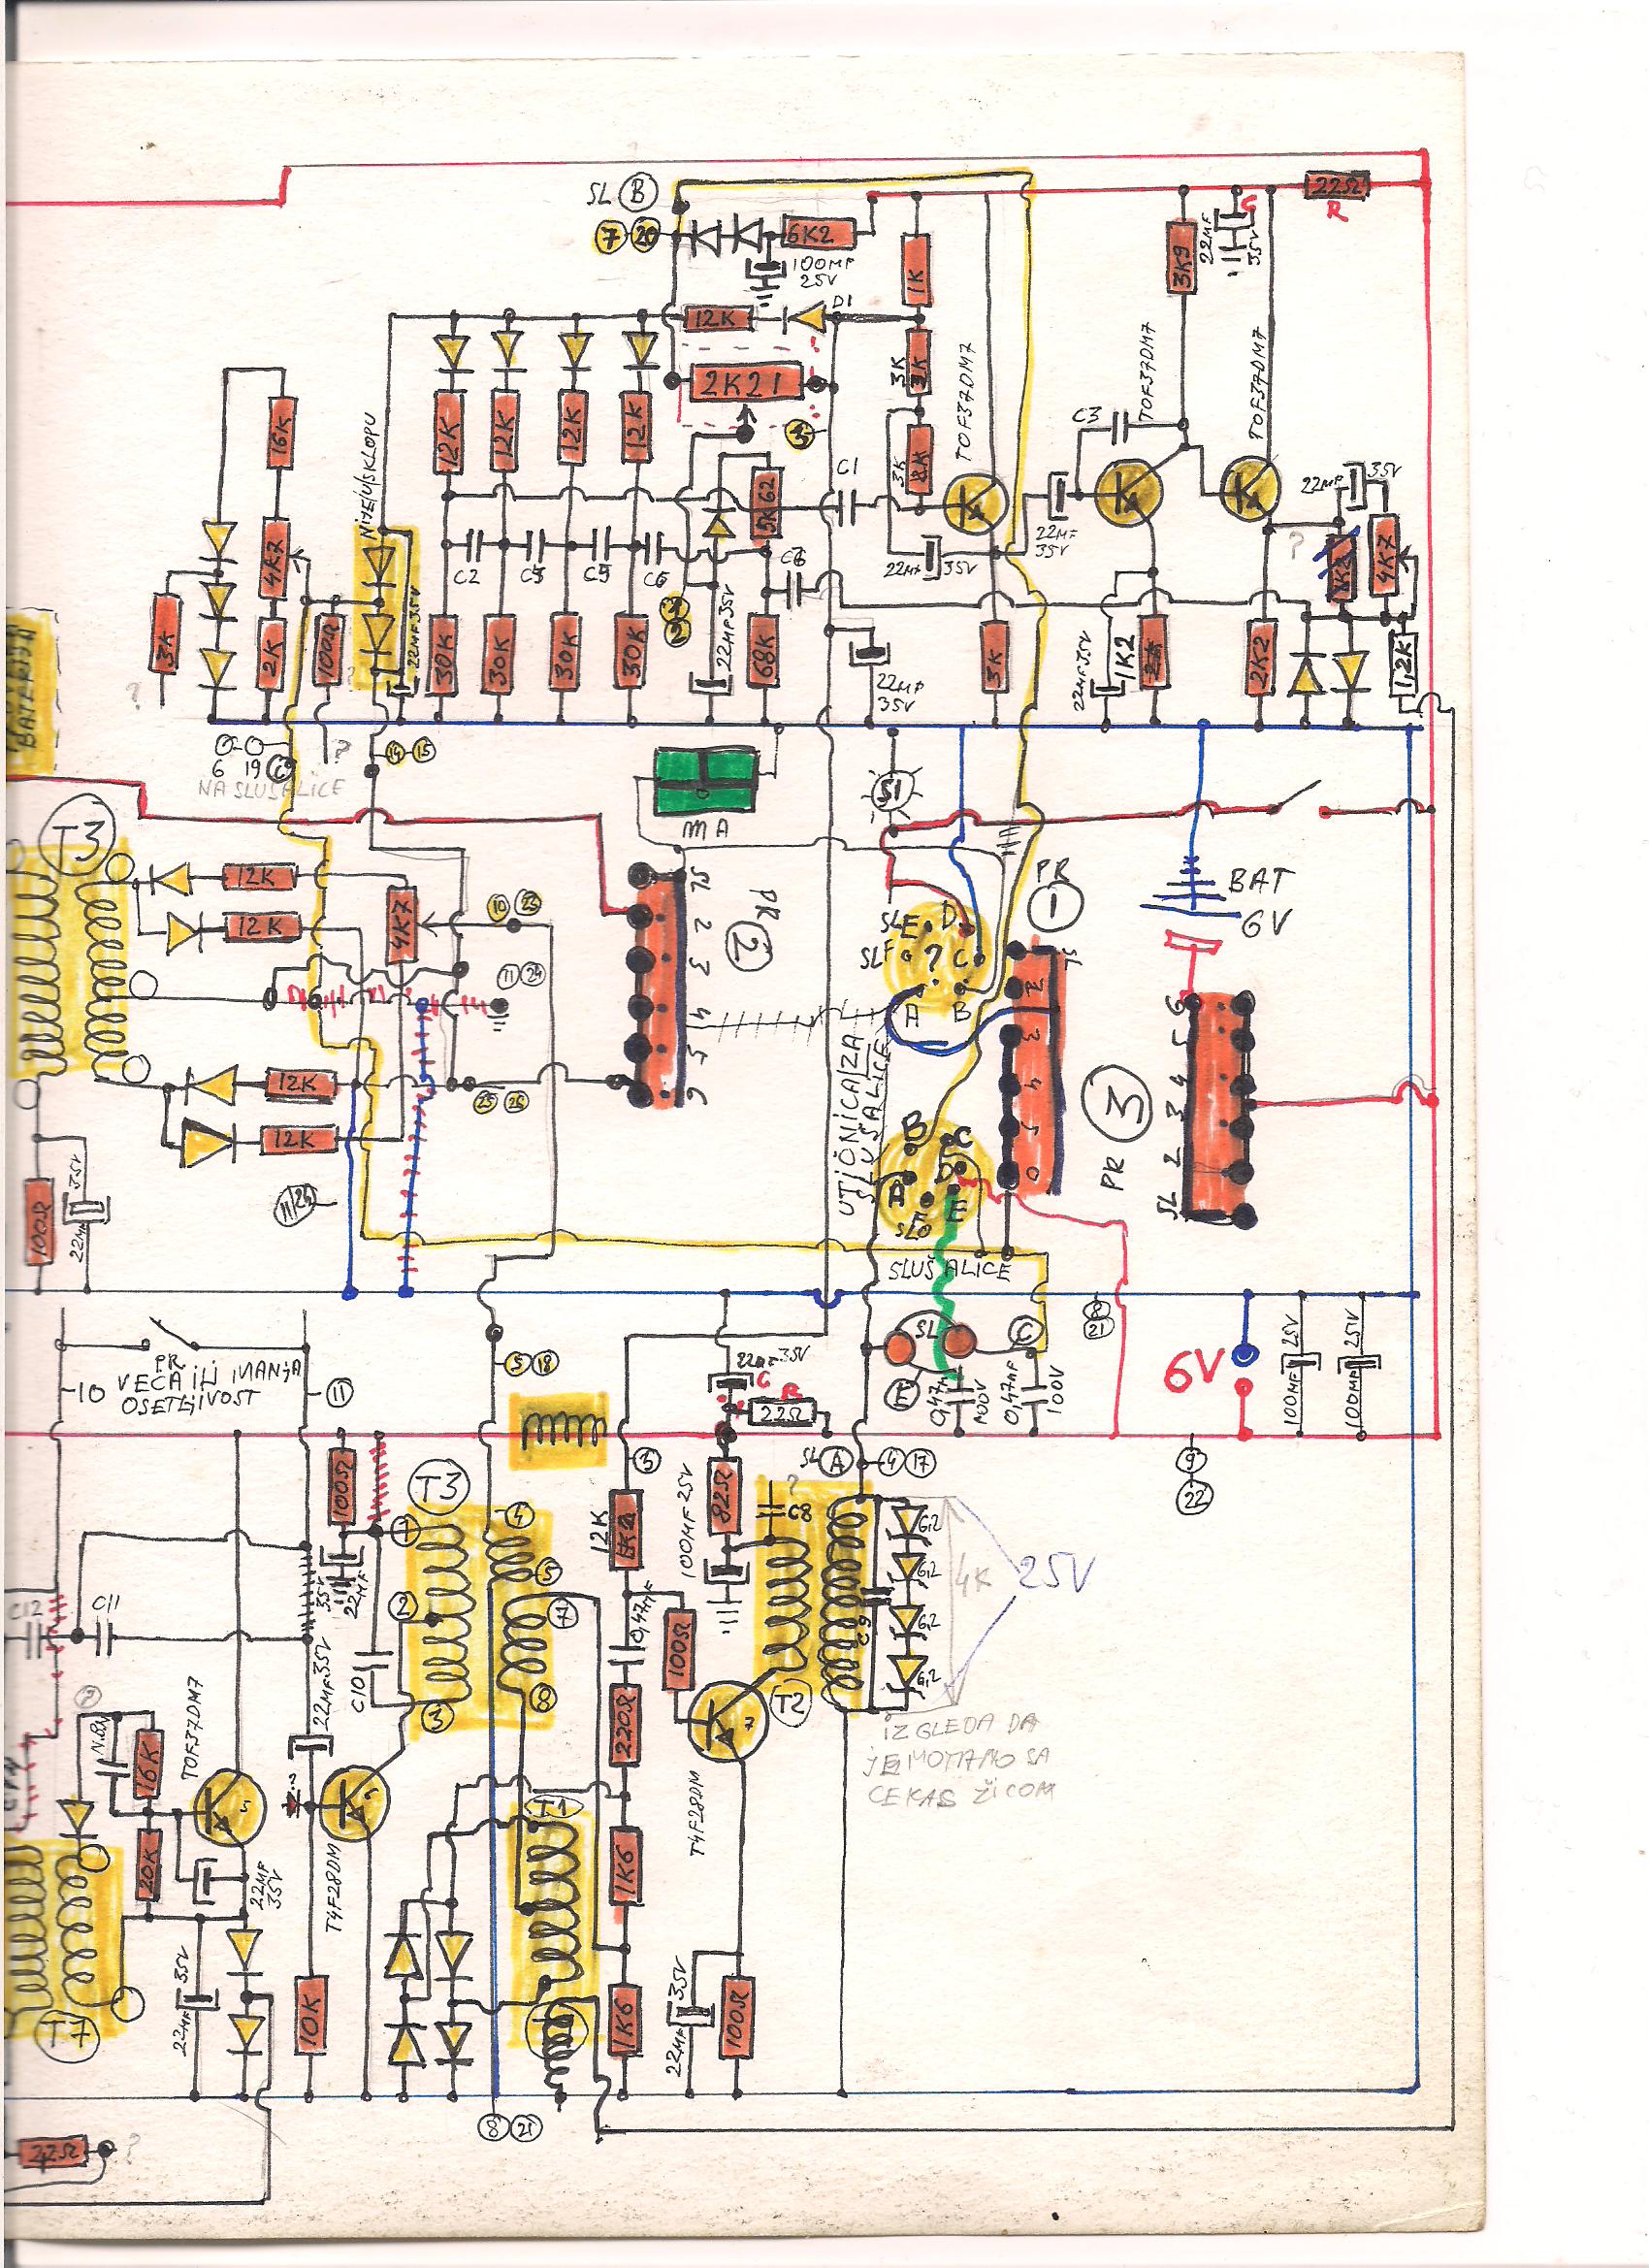 SL B
7 20
6K2
100MF
25V
22Ω
R
C
22MF
35V
3K9
1K
12K
D1
2K21
3K
3K
TOF37DM7
C3
TOF37DM7
TOF37DM7
16K
4K7
2K
3K
100Ω
NIJE/U/SKLOPU
12K
12K
12K
12K
5K62
C1
C2
22MF35V
30K
30K
30K
30K
22MF35V
68K
22MF
35V
22MF
35V
22MF
35V
3K
22MF35V
1K2
2K2
22MF
35V
4K7
1,2K
?
BATERIJA
6 19 C
NA SLUŠALICE
?
14 15
MA
S1
T3
12K
12K
4K7
10 23
11 24
12K
12K
25 26
11/24
100Ω
22MF
35V
SL 2 3 4 5 6
PR
2
SLE
D
SLF
?
C
A
B
PR
1
SL
2
3
4
5
BAT
6V
PR 3
SL 2 3 4 5 6
UTIČNICA/ZA
SLUŠALICE
B
C
A
D
E
SLUŠALICE
SL
C
8
21
0,47MF
100V
0,47MF
100V
6V
100MF 25V
100MF 25V
PR
VEĆA ILI MANJA
OSETLJIVOST
10
11
5 18
22MF 35V
C
R
22Ω
3
SL A 4 17
9
22
100Ω
T3
1
2
3
4
5
7
8
12K
82Ω
100MF 25V
?
C8
C9
6,2
6,2
6,2
6,2
4K
25V
C12
C11
35V
22MF
22MF35V
C10
0,47MF
100Ω
220Ω
T2
IZGLEDA DA
JE MOTANO SA
CEKAS ŽICOM
TOF37DM7
16K
20K
22MF
35V
T4F28DM
T1
1K6
1K6
T4F28DM
22MF 35V
10K
22MF
35V
100Ω
T7
8 21
22Ω
?